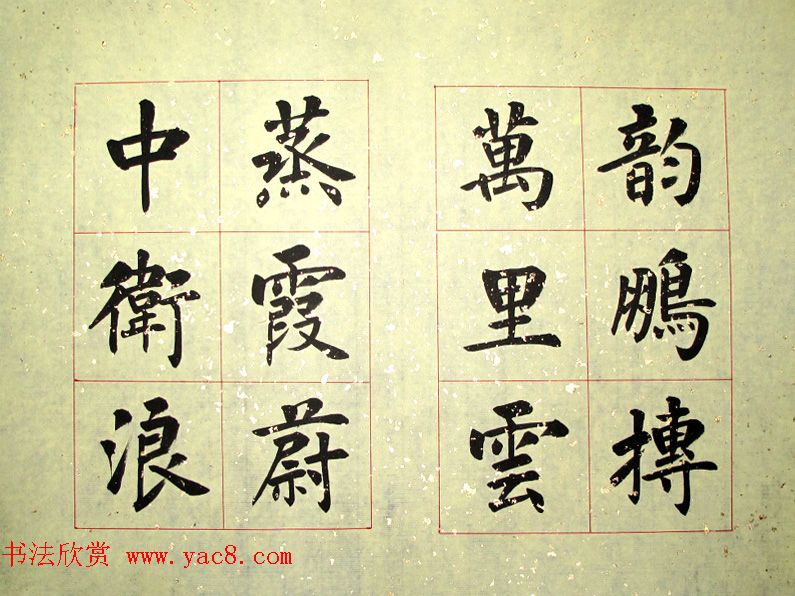 韵鵬摶
萬里雲
蒸霞蔚
中衛浪
书法欣赏 www.yac8.com